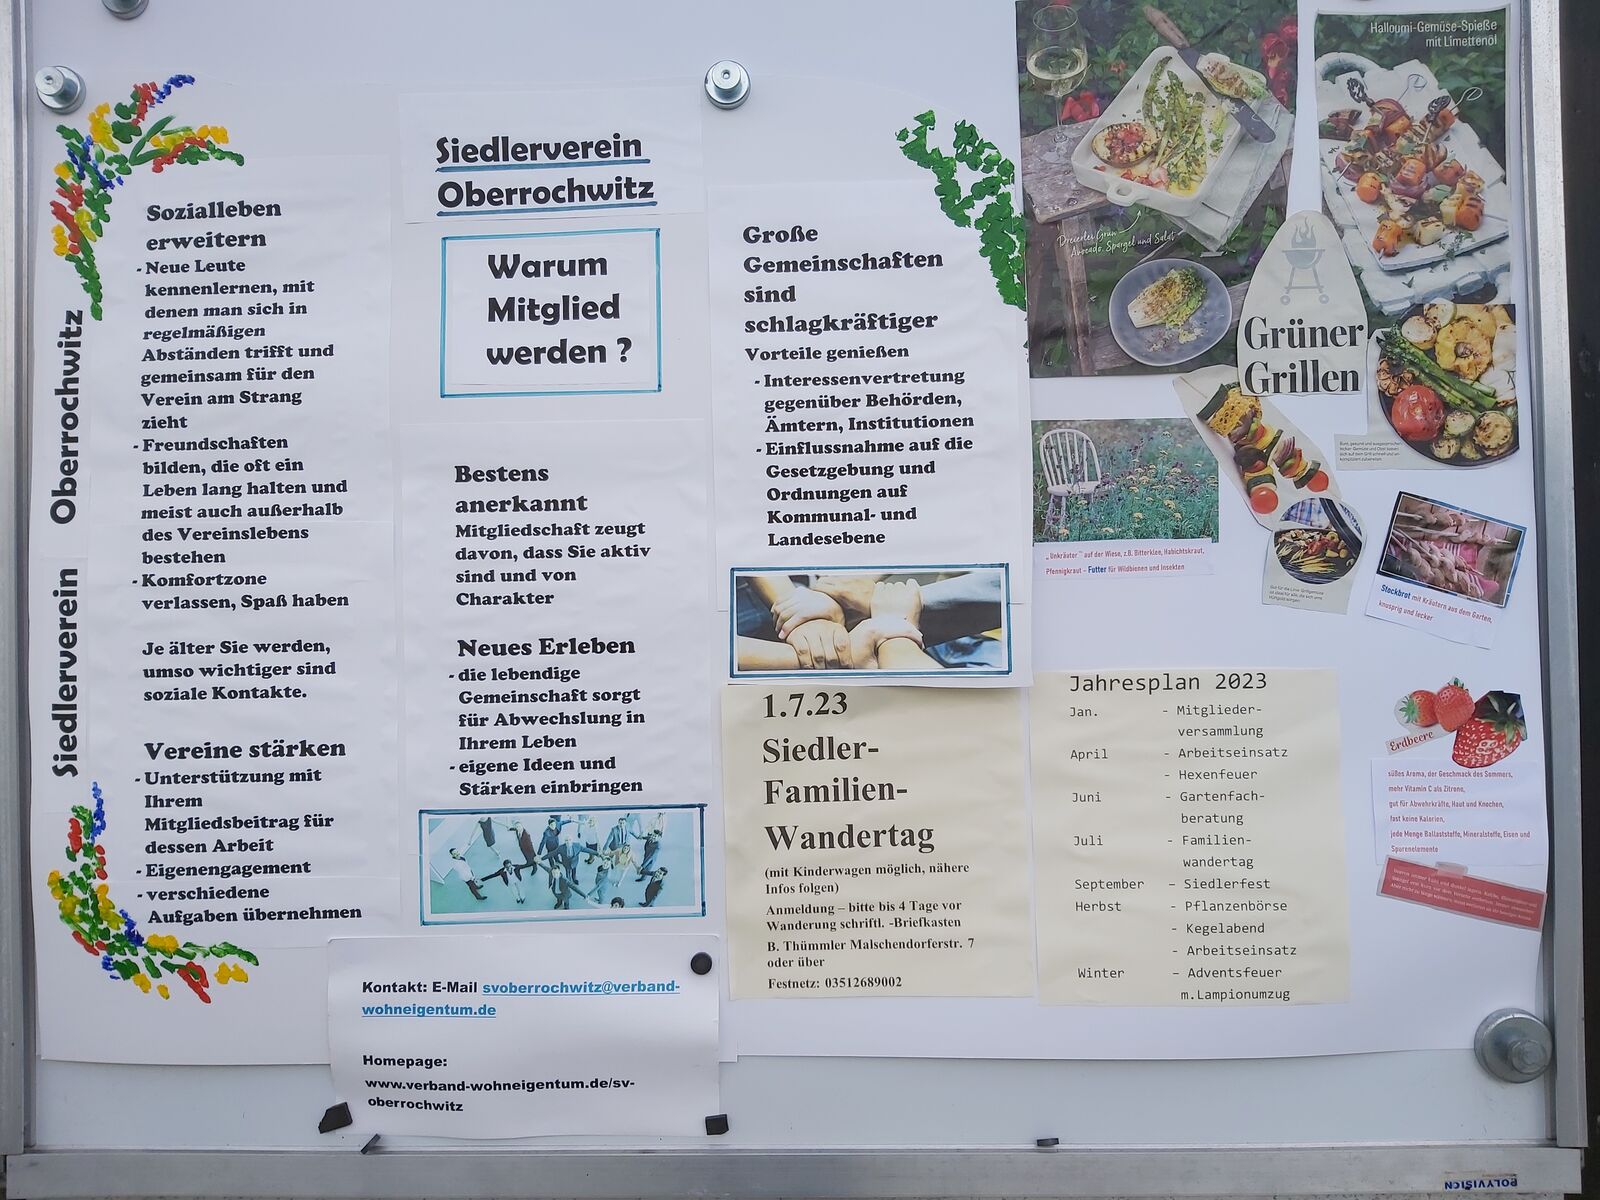 Siedlerverein Oberrochwitz
Sozialleben
erweitern
- Neue Leute
kennenlernen, mit
denen man sich in
regelmäßigen
Abständen trifft und
gemeinsam für den
Verein am Strang
zieht
- Freundschaften
bilden, die oft ein
Leben lang halten und
meist auch außerhalb
des Vereinslebens
bestehen
- Komfortzone
verlassen, Spaß haben
Je älter Sie werden,
umso wichtiger sind
soziale Kontakte.
Vereine stärken
- Unterstützung mit
Ihrem
Mitgliedsbeitrag für
dessen Arbeit
- Eigenengagement
- verschiedene
Aufgaben übernehmen
Siedlerverein
Oberrochwitz
Warum
Mitglied
werden ?
Bestens
anerkannt
Mitgliedschaft zeugt
davon, dass Sie aktiv
sind und von
Charakter
Neues Erleben
- die lebendige
Gemeinschaft sorgt
für Abwechslung in
Ihrem Leben
- eigene Ideen und
Stärken einbringen
Kontakt: E-Mail svoberrochwitz@verband-
wohneigentum.de
Homepage:
www.verband-wohneigentum.de/sv-
oberrochwitz
Große
Gemeinschaften
sind
schlagkräftiger
Vorteile genießen
- Interessenvertretung
gegenüber Behörden,
Ämtern, Institutionen
- Einflussnahme auf die
Gesetzgebung und
Ordnungen auf
Kommunal- und
Landesebene
1.7.23
Siedler-
Familien-
Wandertag
(mit Kinderwagen möglich, nähere
Infos folgen)
Anmeldung – bitte bis 4 Tage vor
Wanderung schriftl. -Briefkasten
B. Thümmler Malschendorferstr. 7
oder über
Festnetz: 03512689002
Dreierlei Grün
Avocado, Spargel und Salat
Halloumi-Gemüse-Spieße
mit Limettenöl
Grüner
Grillen
„Unkräuter" auf der Wiese, z.B. Bitterklee, Habichtskraut,
Pfennigkraut - Futter für Wildbienen und Insekten
Stockbrot mit Kräutern aus dem Garten,
knusprig und lecker
Jahresplan 2023
Jan. - Mitglieder-
versammlung
April - Arbeitseinsatz
- Hexenfeuer
Juni - Gartenfach-
beratung
Juli - Familien-
wandertag
September – Siedlerfest
Herbst - Pflanzenbörse
- Kegelabend
- Arbeitseinsatz
Winter – Adventsfeuer
m.Lampionumzug
Erdbeere
süßes Aroma, der Geschmack des Sommers,
mehr Vitamin C als Zitrone,
gut für Abwehrkräfte, Haut und Knochen,
fast keine Kalorien,
jede Menge Ballaststoffe, Mineralstoffe, Eisen und
Spurenelemente
POLYVISION